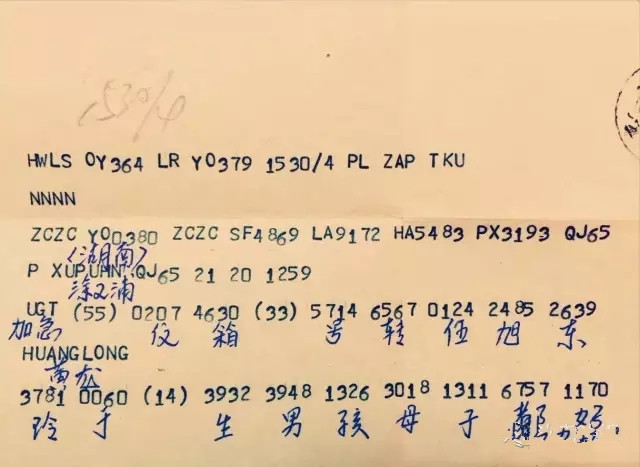 1530/4
HWLS OY364 LR YO379 1530/4 PL ZAP TKU
NNNN
ZCZC YO0380 ZCZC SF4869 LA9172 HA5483 PX3193 QJ65
(湖南)
P XUPUHN QJ65 21 20 1259
溆浦
UGT (55) 0207 4630 (33) 5714 6567 0124 2485 2639
加急 伩 箱 号 转 伍 旭 东
HUANGLONG
黄龙
3781 0060 (14) 3932 3948 1326 3018 1311 6757 1170
玲 于 生 男 孩 母 子 都 好.